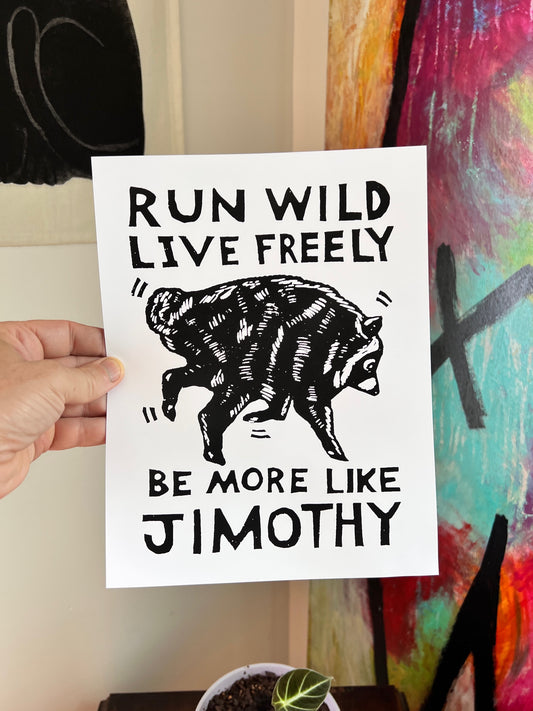 RUN WILD
LIVE FREELY
BE MORE LIKE
JIMOTHY